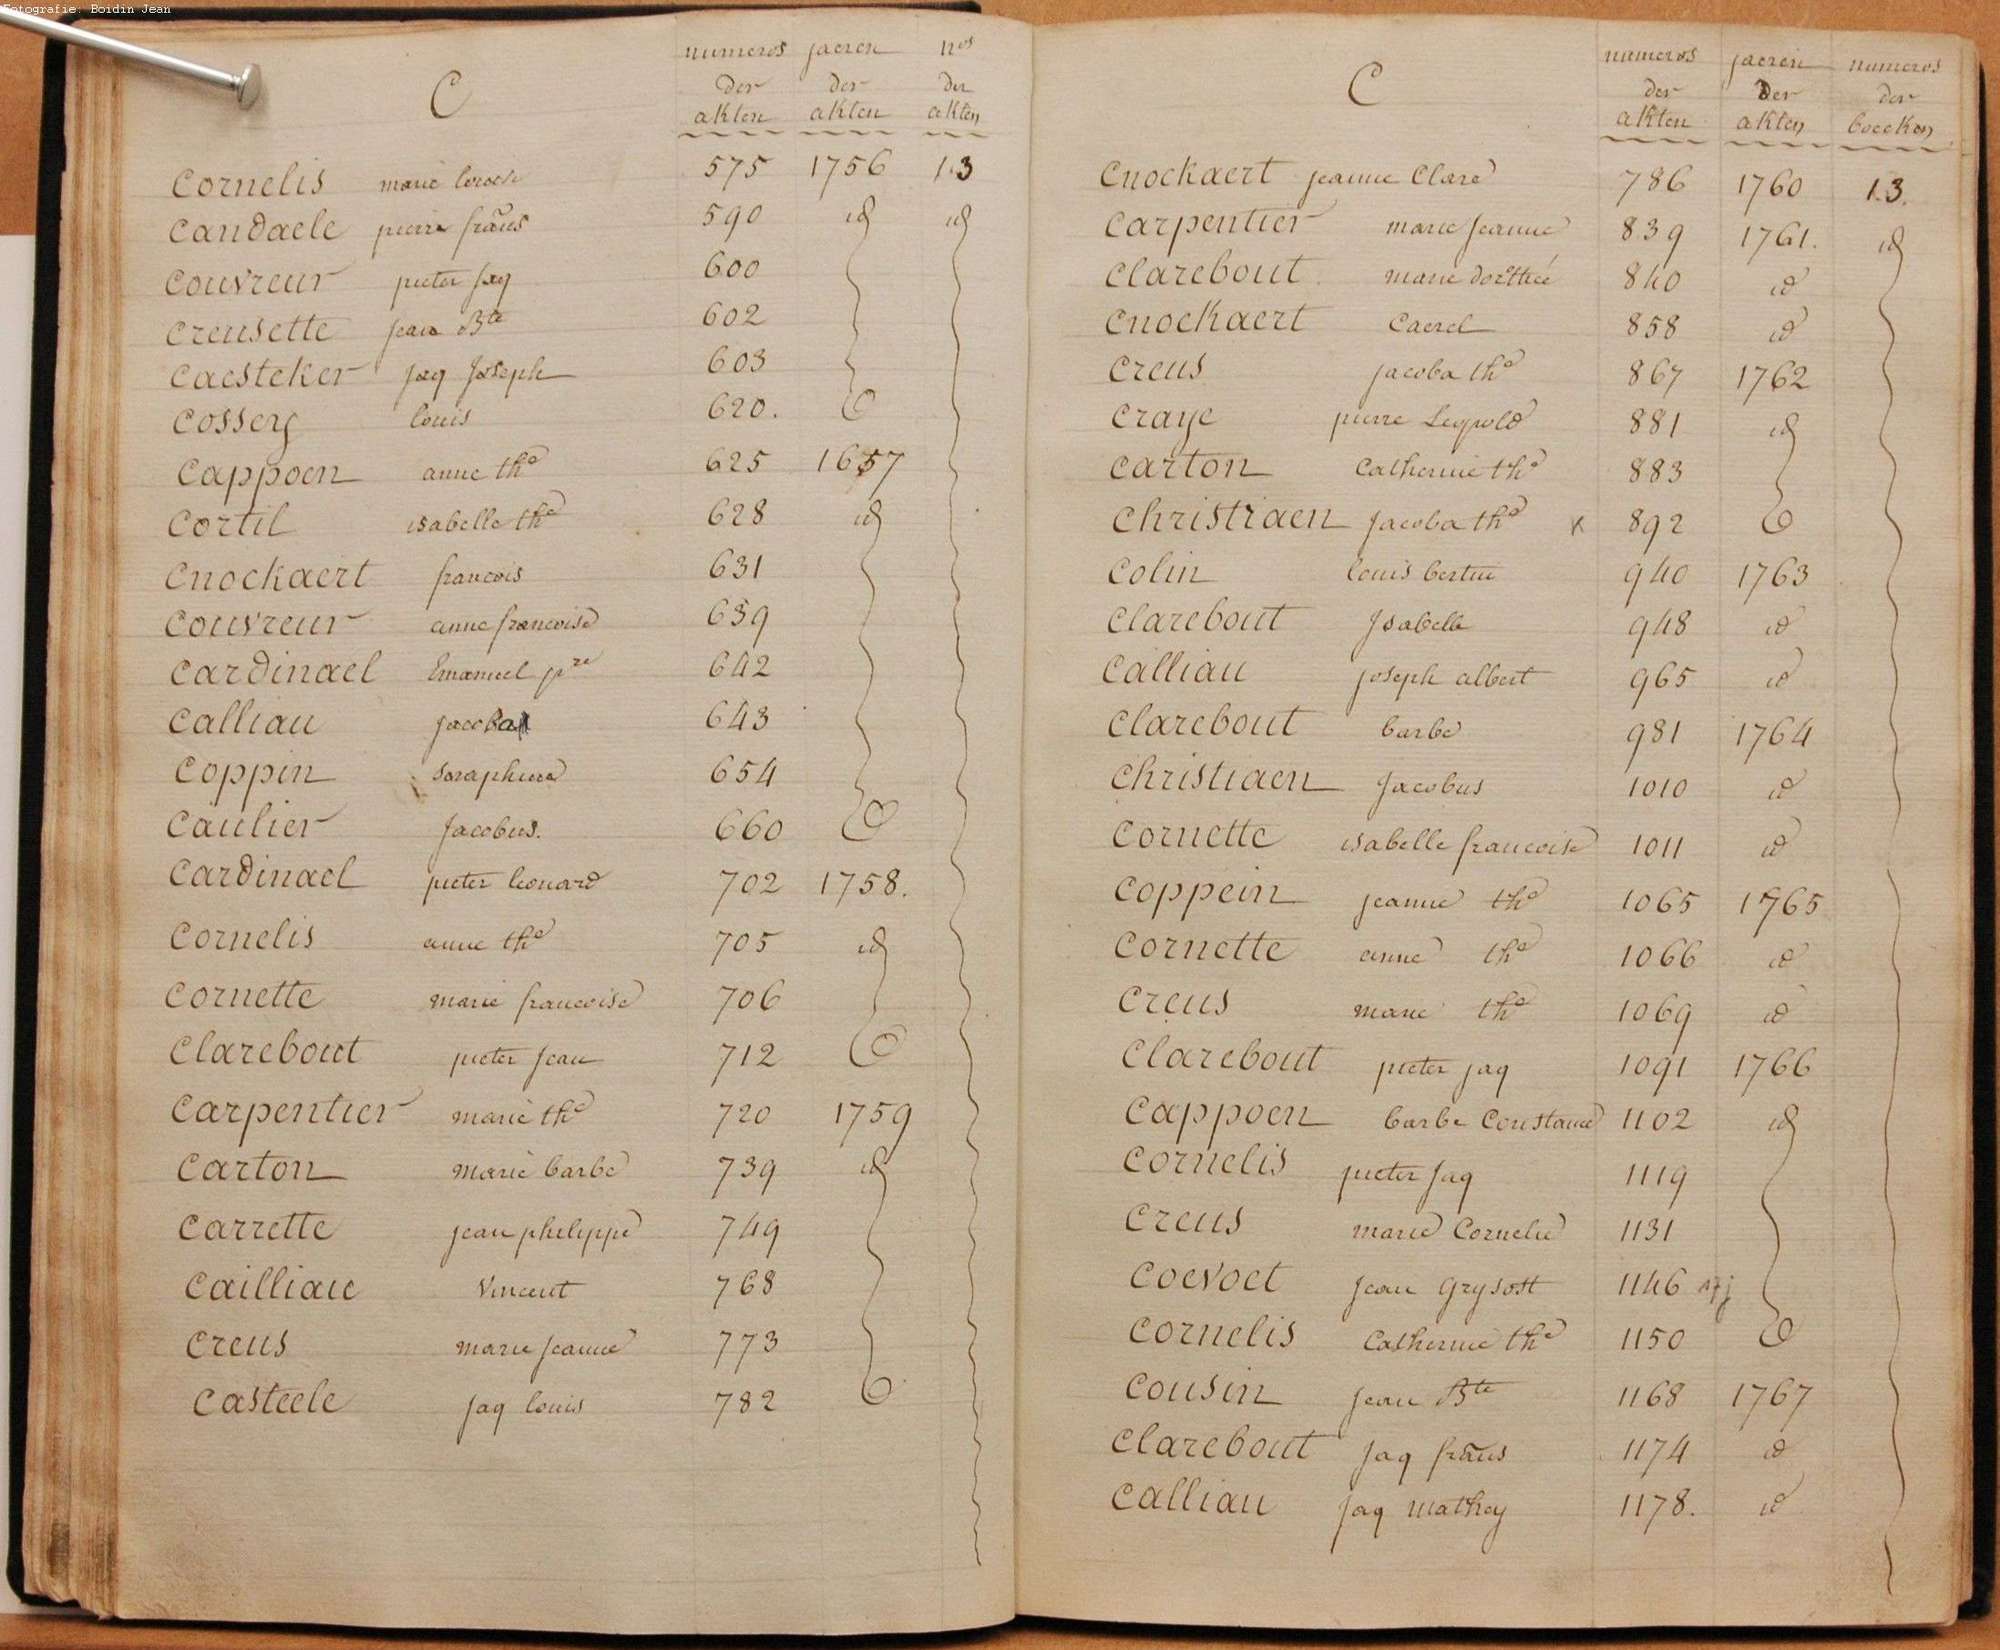 Fotografie: Boidin Jean
C
numeros der akten jaeren der akten nos der akten
Cornelis marie 575 1756 1.3
Candaele pierre frãnes 590 id id
Couvreur pieter Jaq 600
Creusette jean Bte 602
Caesteker Jaq Joseph 603
Cossey louis 620.
Cappoen anne the 625 1657
Cortil isabelle the 628 id
Cnockaert francois 631
Couvreur anne francoise 639
Cardinael Emanuel pre 642
Calliau 643
Coppin 654
Caulier Jacobus. 660
Cardinael pieter leonard 702 1758.
Cornelis anne the 705 id
Cornette marie francoise 706
Clarebout pieter Jean 712
Carpentier marie the 720 1759
Carton marie barbe 739 id
Carrette jean philippe 749
Cailliau Vincent 768
Creus marie jeanne 773
Casteele Jaq louis 782
C
numeros der akten jaeren der akten numeros der boecken
Cnockaert jeanne Clare 786 1760 1.3.
Carpentier marie Jeanne 839 1761. id
Clarebout marie 840 id
Cnockaert Caerel 858 id
Creus jacoba the 867 1762
Craye pierre Leopold 881 id
Carton Catherine the 883
Christiaen Jacoba the x 892
Colin louis bertin 940 1763
Clarebout Isabelle 948 id
Calliau joseph albert 965 id
Clarebout barbe 981 1764
Christiaen Jacobus 1010 id
Cornette isabelle francoise 1011 id
Coppein jeanne the 1065 1765
Cornette anne the 1066 id
Creus marie the 1069 id
Clarebout pieter jaq 1091 1766
Cappoen barbe Constance 1102 id
Cornelis pieter Jaq 1119
Creus marie Cornelie 1131
Coevoet jean Grysost 1146
Cornelis Catherine the 1150
Cousin jean Bte 1168 1767
Clarebout Jaq frãns 1174 id
Calliau Jaq mathey 1178. id